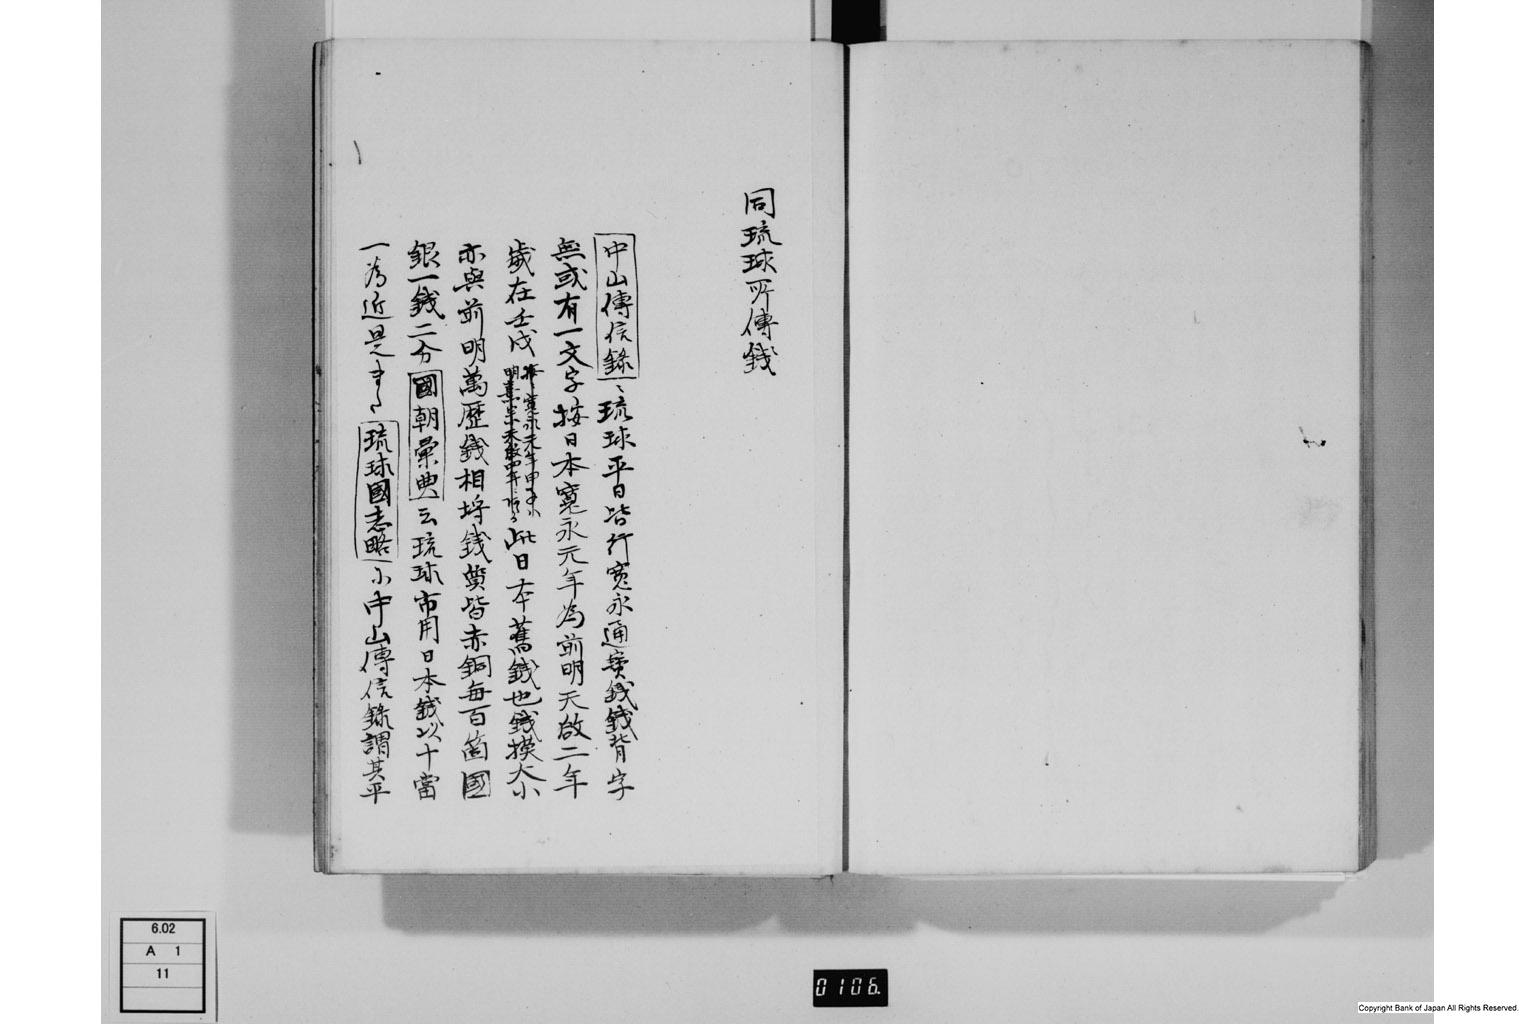 同琉球所傳錢
中山傳信錄ニ琉球平日皆行寬永通寶錢錢背字
無或有一文字按日本寬永元年為前明天啟二年
歲在壬戌 此日本舊錢也錢摸大小
亦與前明萬歷錢相埒錢質皆赤銅每百箇國
銀一錢二分國朝彙典云琉球市用日本錢以十當
一為近是 琉球國志略ニ中山傳信錄謂其平
6.02
A 1
11
0106.
Copyright Bank of Japan All Rights Reserved.